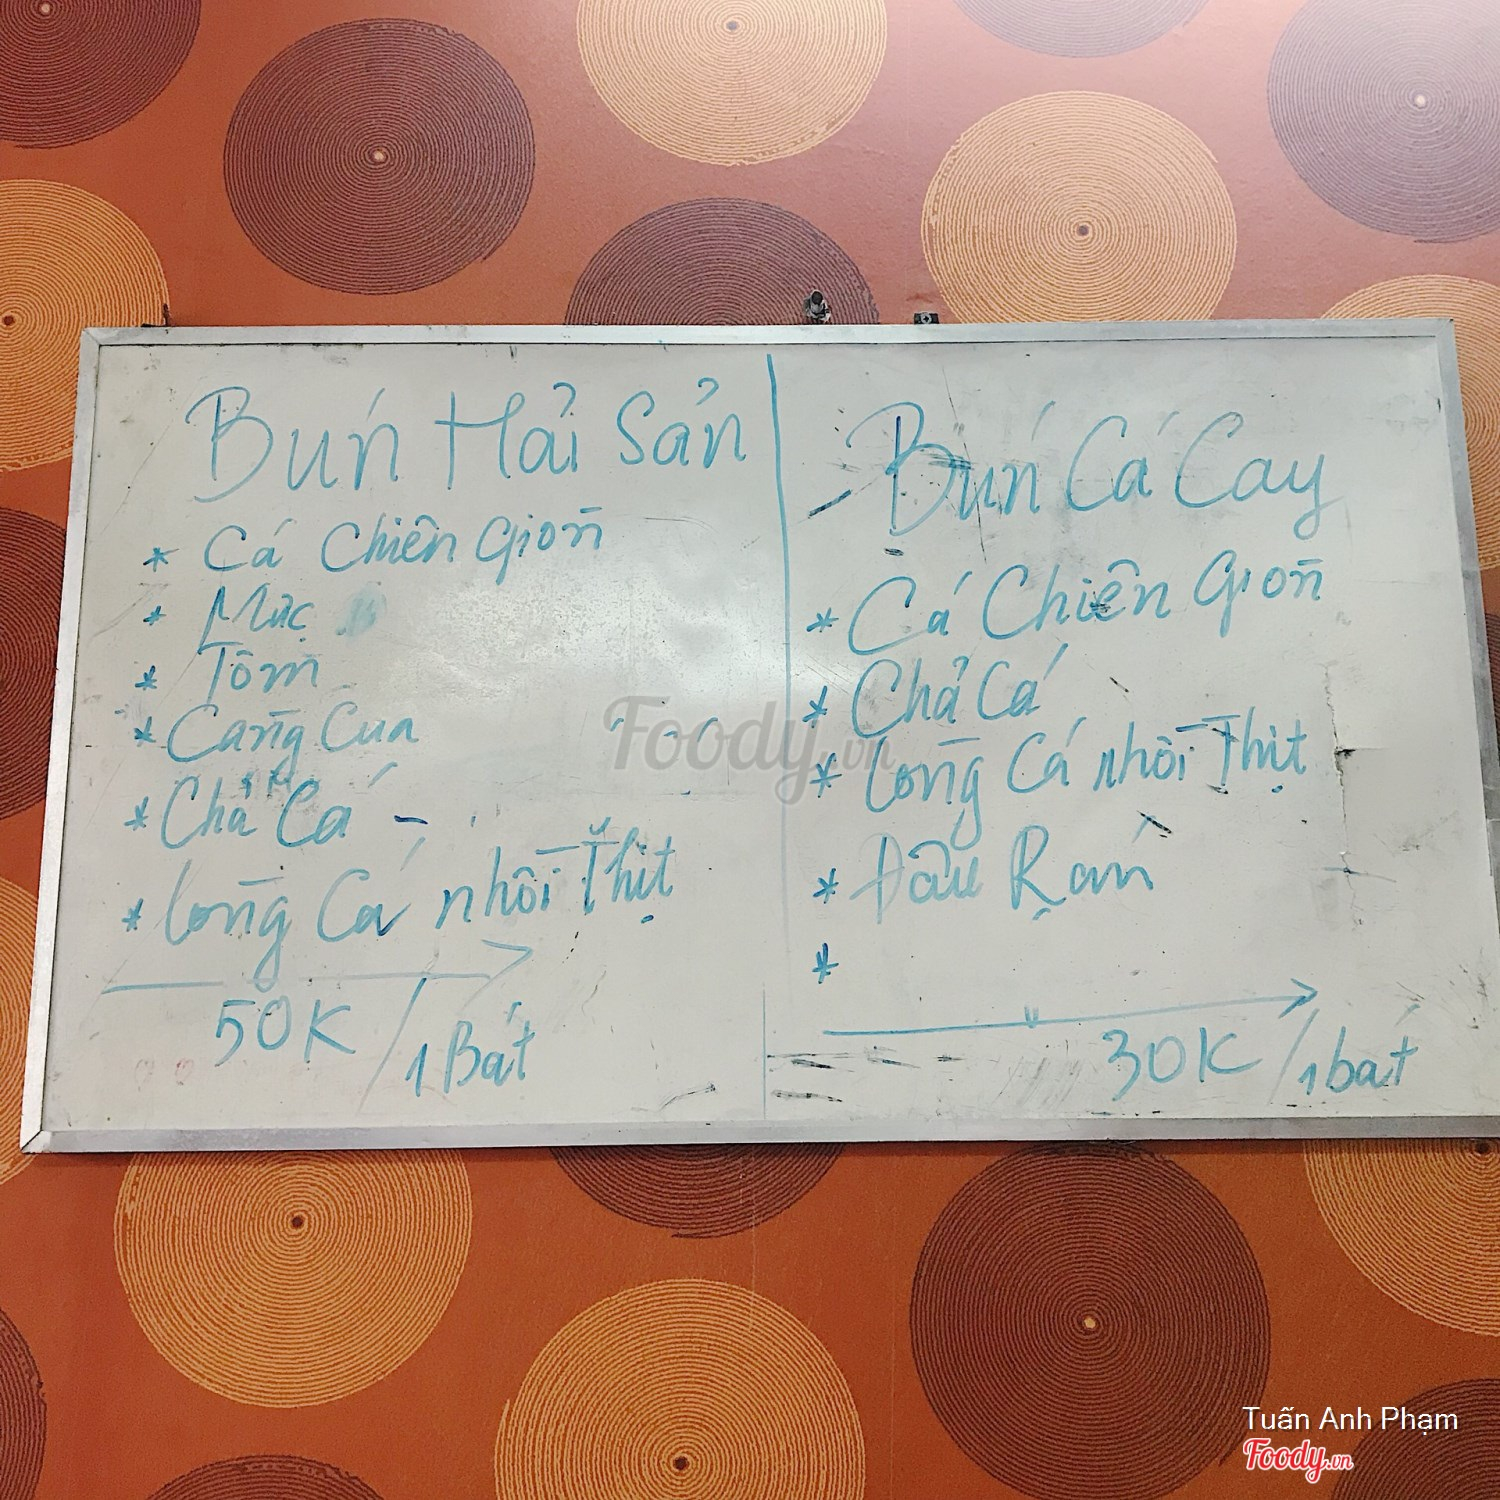 Bún Hải Sản
* Cá Chiên Giòn
* Mực
* Tôm
* Càng Cua
* Chả Cá -
* lòng Cá nhồi Thịt
50K / 1 Bát
Bún Cá Cay
* Cá Chiên Giòn
* Chả Cá
* lòng Cá nhồi Thịt
* Đậu Rán
*
30K / 1 bát
Foody.vn
Tuấn Anh Phạm
Foody.vn